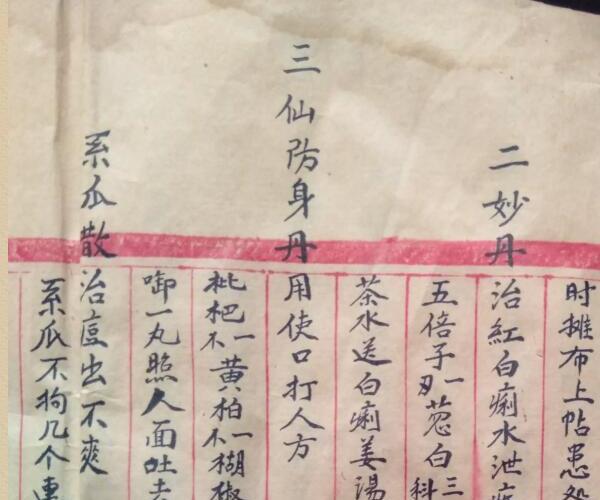 时摊布上帖患处
二妙丹治紅白痢水泄
五倍子一刃葱白三科
茶水送白痢姜湯
三仙防身丹用使口打人方
枇杷一不黄柏一不樹椒
啣一丸照人面吐去
系瓜散治痘出不爽
系瓜不拘几个連